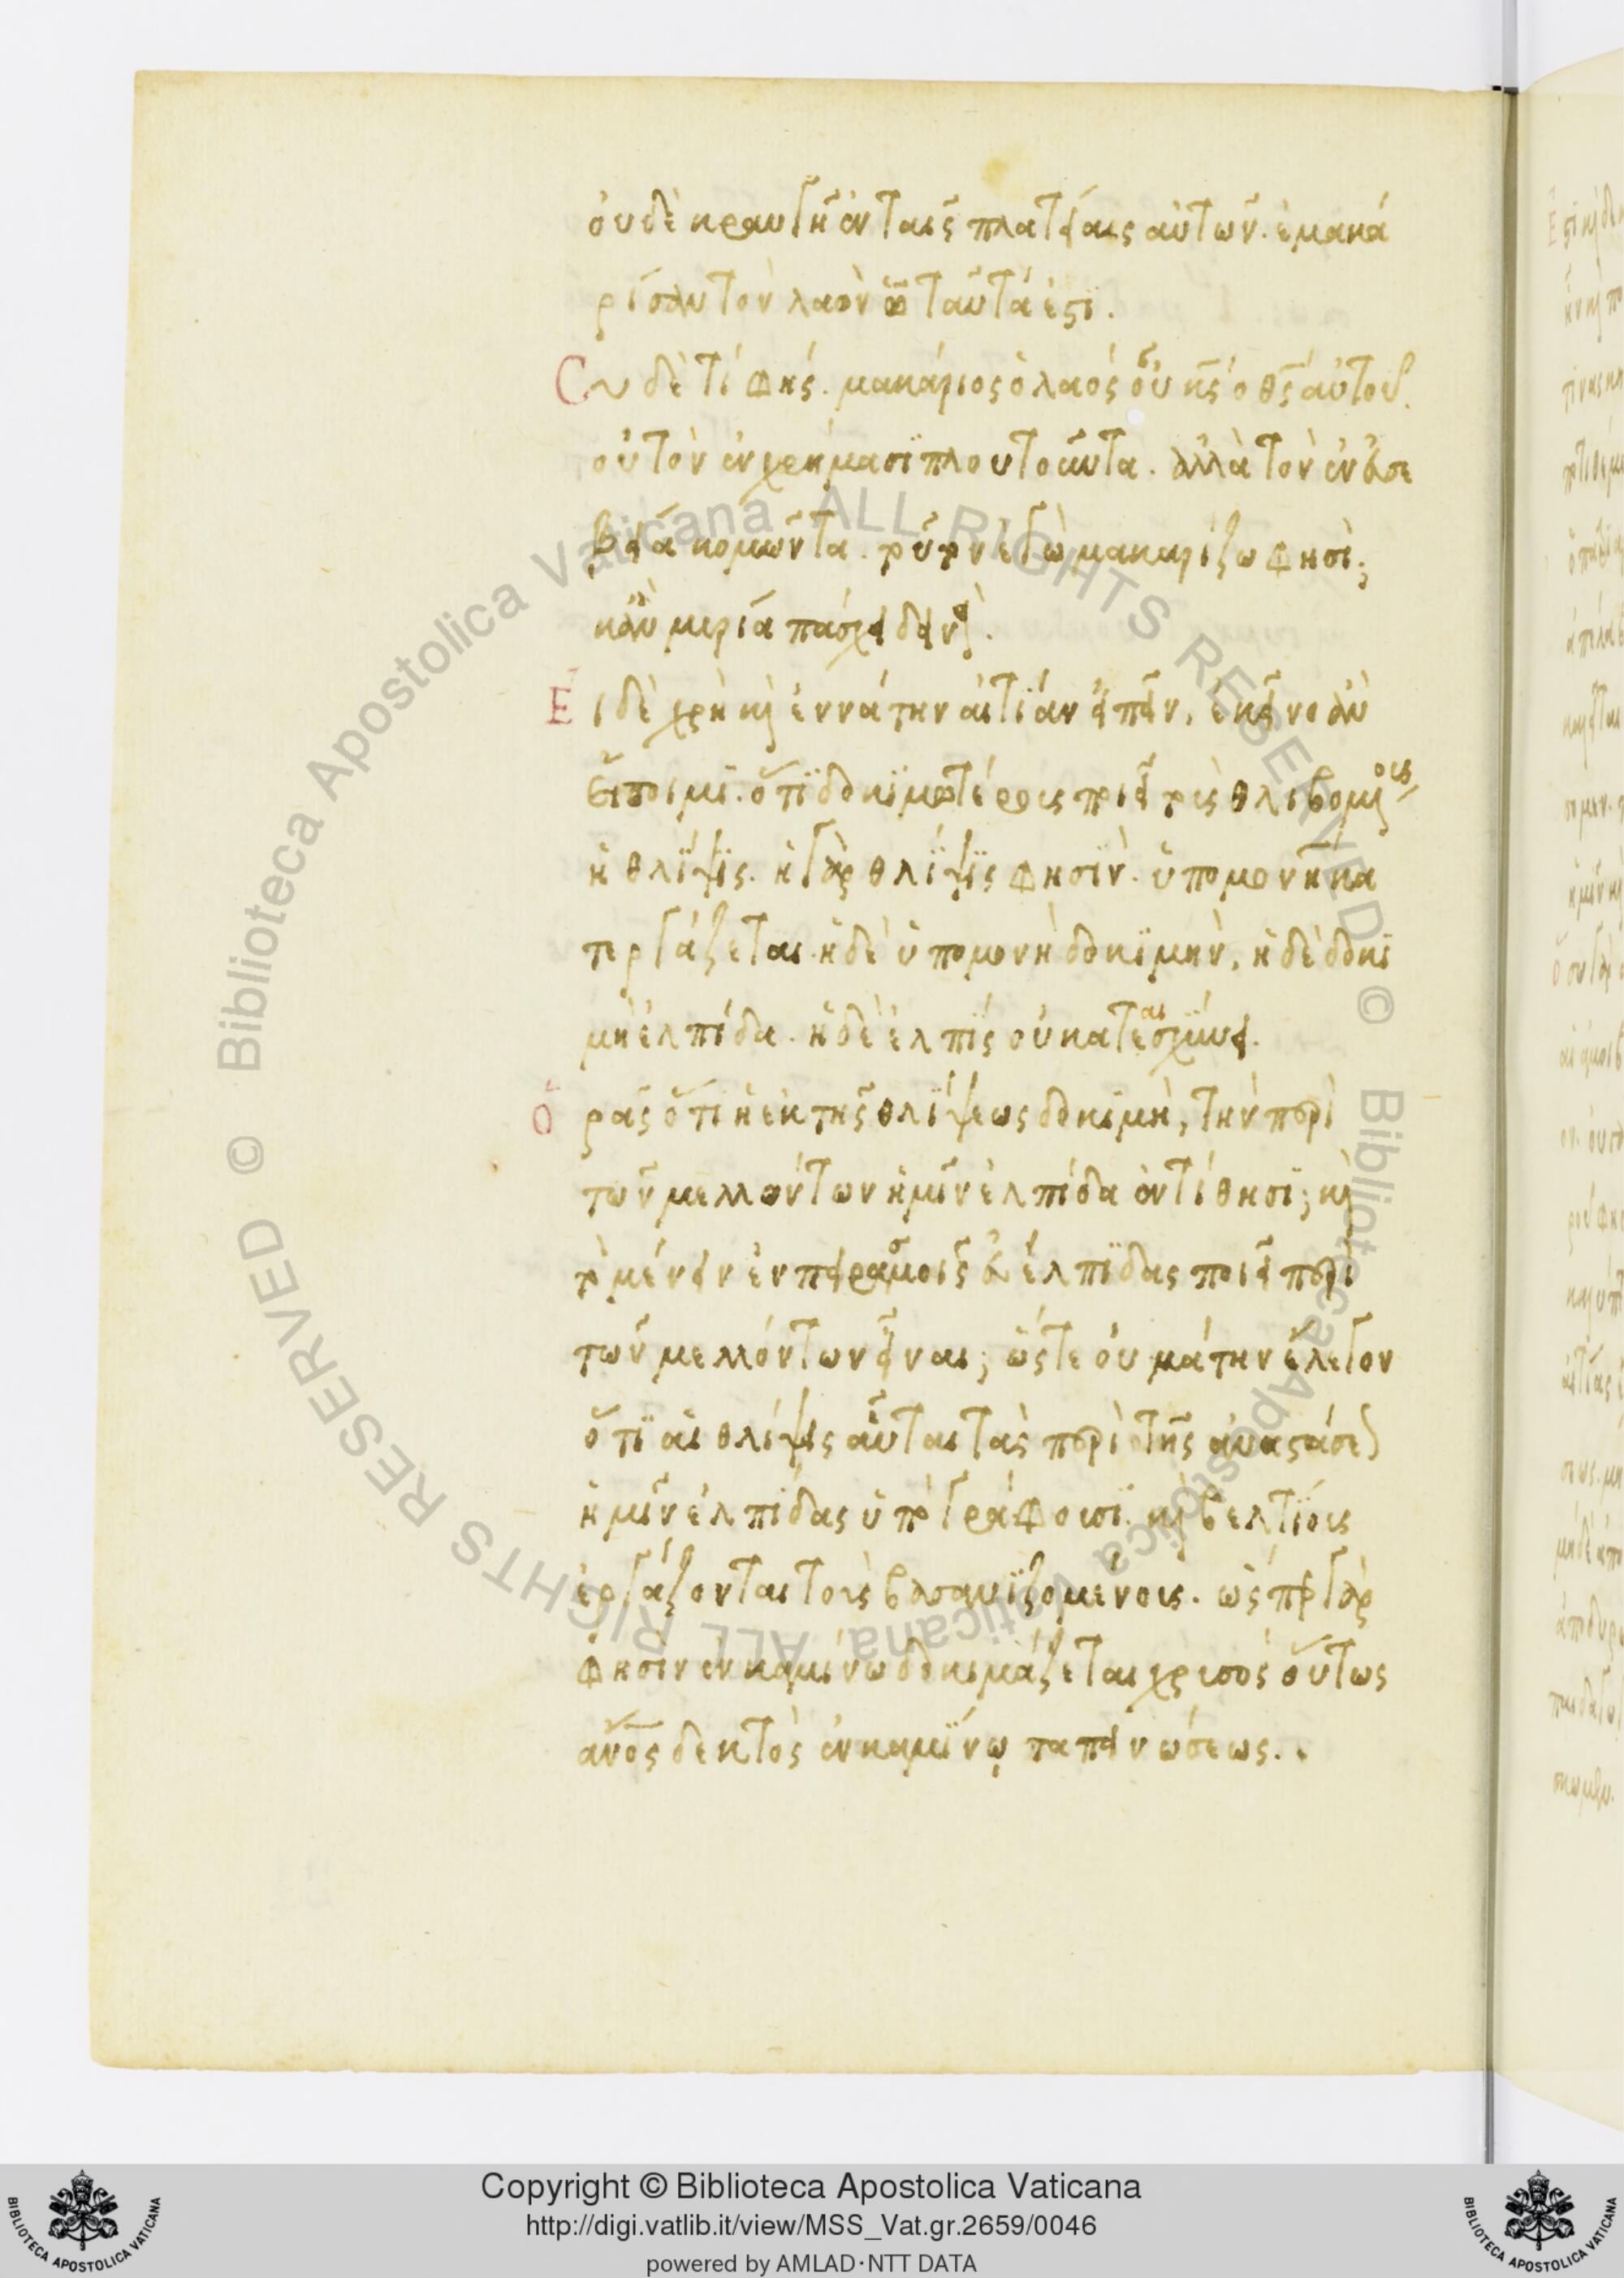 οὐδὲ κραυγὴ ἐν ταῖς πλατείαις αὐτῶν. ἐμακά
ρισαν τὸν λαὸν ᾧ ταῦτά ἐστι.
Συ δὲ τί φής. μακάριος ὁ λαὸς οὗ κς ὁ θς αὐτοῦ.
οὐ τὸν ἐν χρήμασι πλουτοῦντα. ἀλλὰ τὸν ἐν εὐσε
βεία κομῶντα. τοῦτον ἐγὼ μακαρίζω φησί;
κἂν μυρία πάσχει δεινά.
Ει δὲ χρὴ καὶ ἐννάτην αἰτίαν εἰπεῖν, ἐκεῖνο ἂν
εἴποιμι. ὅτι δοκιμωτέρους ποιεῖ τοὺς θλιβομένους
ἡ θλίψις. ἡ γὰρ θλίψις φησὶν. ὑπομονὴν κα
τεργάζεται. ἡ δὲ ὑπομονὴ δοκιμήν, ἡ δὲ δοκι
μὴ ἐλπίδα. ἡ δὲ ἐλπὶς οὐ καταισχύνει.
Ὁρᾶς ὅτι ἡ ἐκ τῆς θλίψεως δοκιμὴ, τὴν περὶ
τῶν μελλόντων ἡμῖν ἐλπίδα ἐντίθησι; καὶ
τὸ μένειν ἐν πειρασμοῖς εὐέλπιδας ποιεῖ περὶ
τῶν μελλόντων εἶναι; ὥστε οὐ μάτην ἔλεγον
ὅτι αἱ θλίψις αὗται τὰς περὶ τῆς ἀναστάσεως
ἡμῖν ἐλπίδας ὑπογράφουσι. καὶ βελτίους
ἐργάζονται τοὺς βασανιζομένους. ὥσπερ γὰρ
φησὶν ἐν καμίνω δοκιμάζεται χρυσὸς οὕτως
ἄνος δεκτὸς ἐν καμίνῳ ταπεινώσεως.
Copyright © Biblioteca Apostolica Vaticana
http://digi.vatlib.it/view/MSS_Vat.gr.2659/0046
powered by AMLAD·NTT DATA
BIBLIOTECA APOSTOLICA VATICANA
BIBLIOTECA APOSTOLICA VATICANA
Biblioteca Apostolica Vaticana ALL RIGHTS RESERVED ©
Biblioteca Apostolica Vaticana ALL RIGHTS RESERVED ©